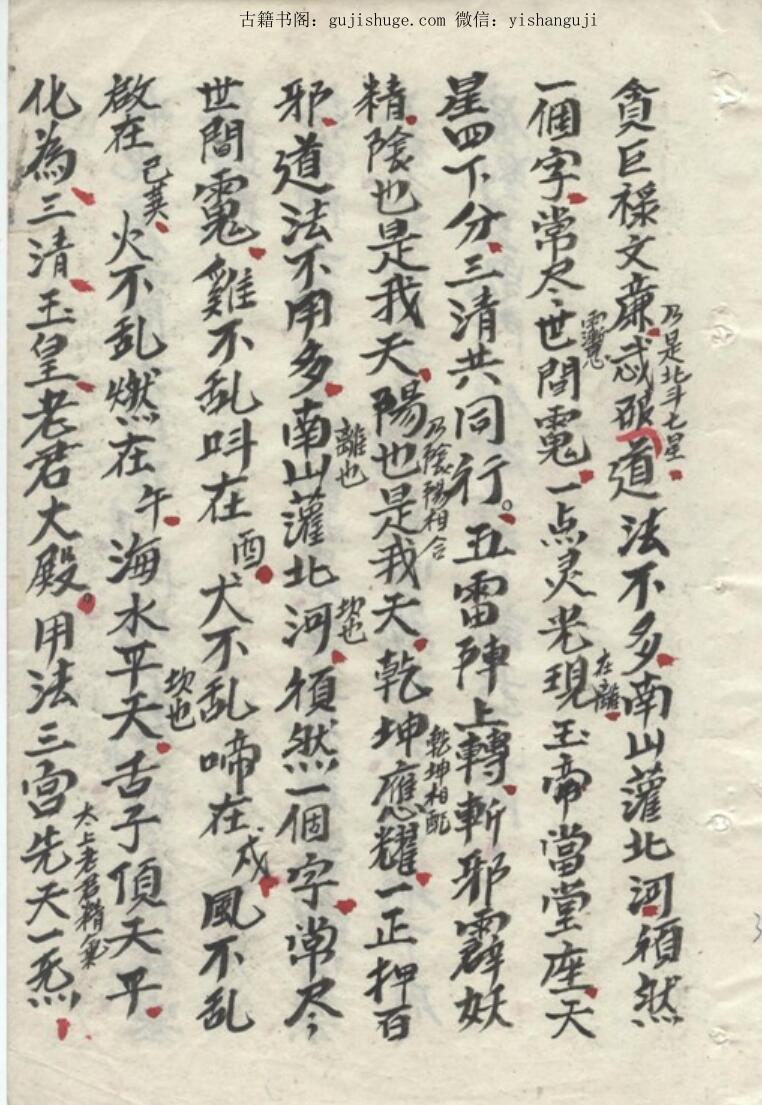 古籍书阁：gujishuge.com 微信：yishanguji
貪巨禄文廉武破道法不多南山灌北河須然
乃是北斗七星
一個字常尽世間䰟一点灵光現玉帝當堂座天
在離
星四下分三清共同行五雷陣上轉斬邪霹妖
精陰也是我天陽也是我天乾坤應耀一正押百
乃陰陽相合
乾坤相配
邪道法不用多南山灌北河須然一個字常尽
離也
坎也
世間䰟雞不乱呌在酉犬不乱啼在戍風不乱
啟在巳巽火不乱燃在午海水平天舌子頂天平
坎也
化為三清玉皇老君大殿用法三宫先天一炁
太上老君精氣